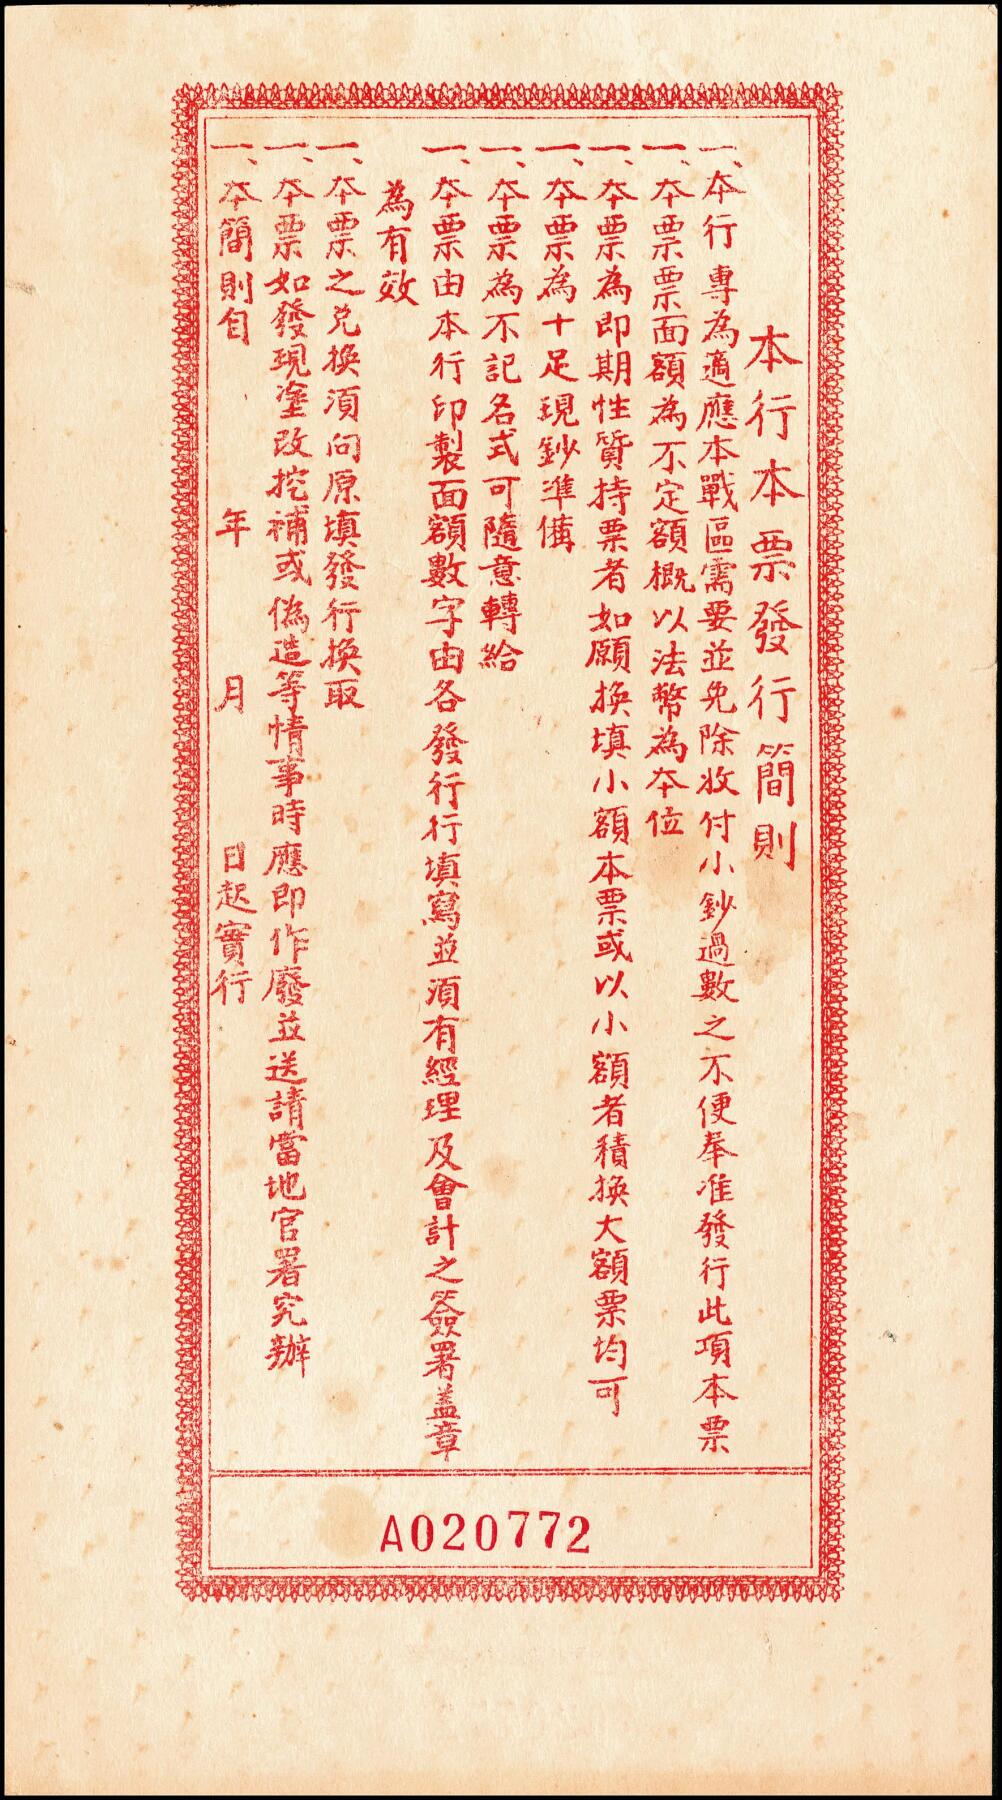 本行本票發行簡則
一、本行專為適應本戰區需要並免除收付小鈔過數之不便奉准發行此項本票
一、本票票面額為不定額概以法幣為本位
一、本票為即期性質持票者如願換填小額本票或以小額者積換大額票均可
一、本票為十足現鈔準備
一、本票為不記名式可隨意轉給
一、本票由本行印製面額數字由各發行行填寫並須有經理及會計之簽署蓋章
為有效
一、本票之兌換須向原填發行換取
一、本票如發現塗改挖補或偽造等情事時應即作廢並送請當地官署究辦
一、本簡則自 年 月 日起實行
A020772